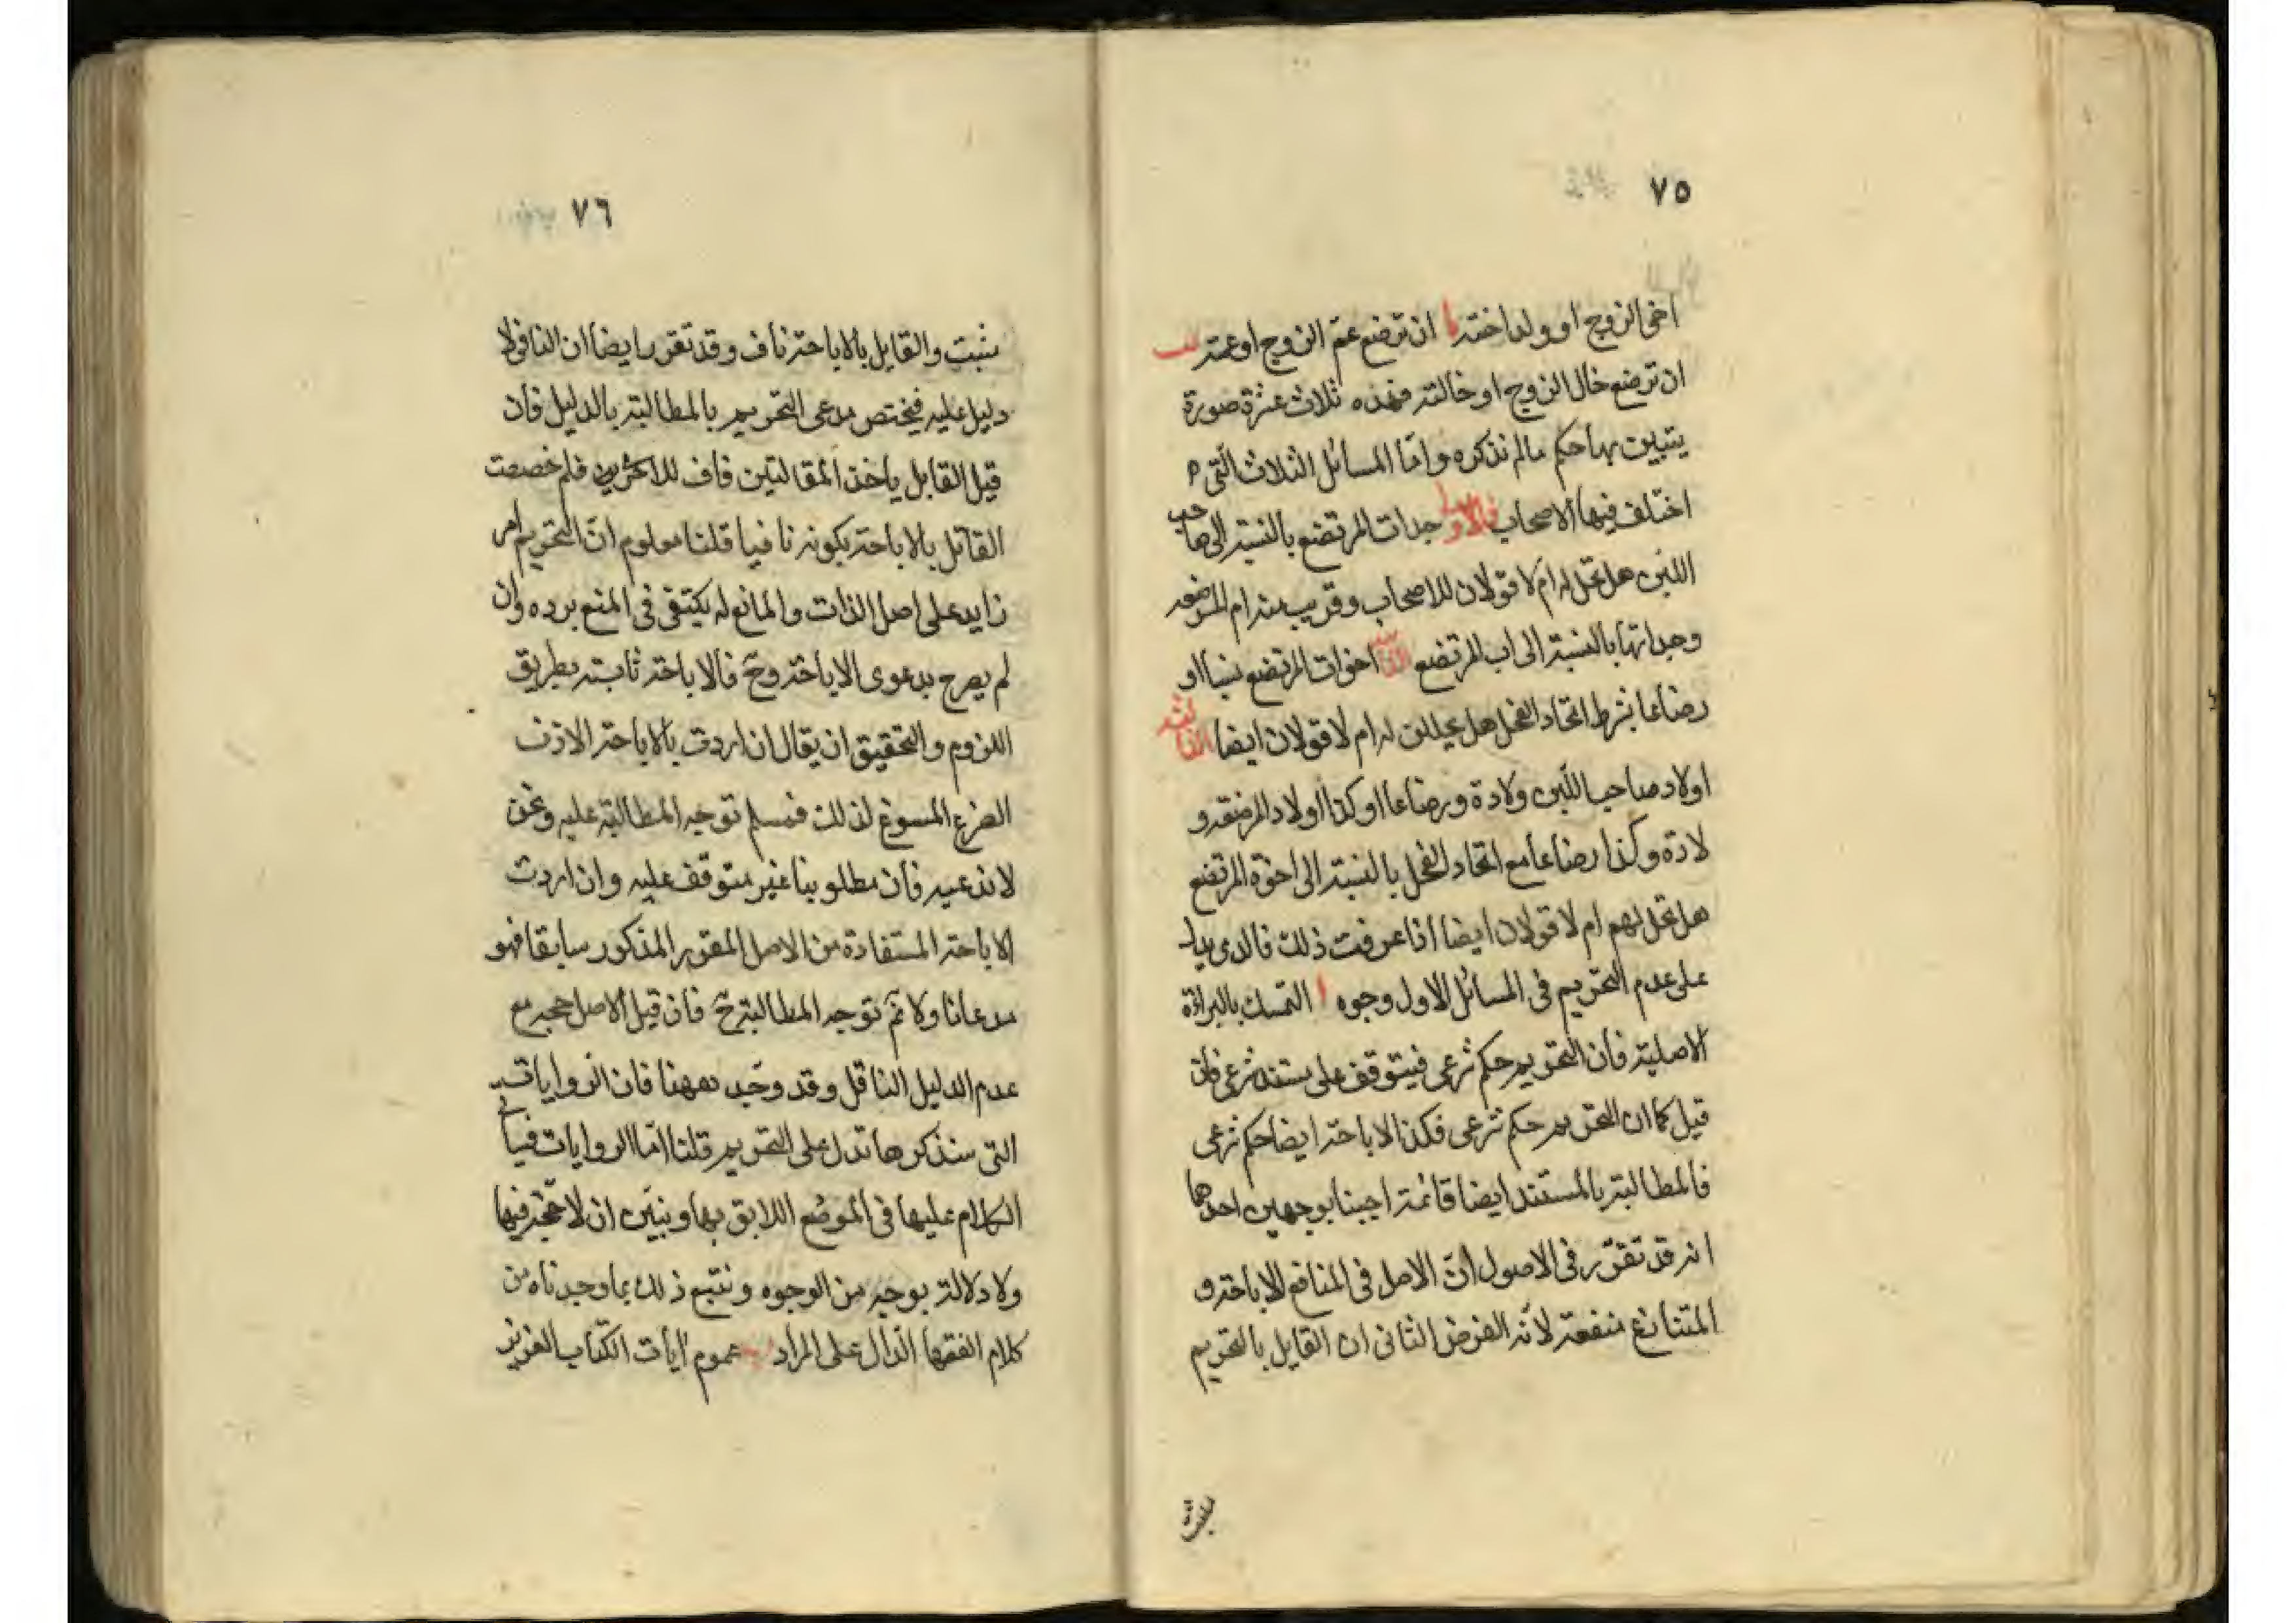 ٧٥
اخى الزوج او ولد اخته يا ان ترضع عم الزوج او عمته يب
ان ترضع خال الزوج او خالته فهذه ثلاث عشرة صورة
يتبين بها حكم ما لم نذكره وامّا المسائل الثلاث الّتى
اختلف فيها الاصحاب فالاولى جدات المرتضع بالنسبة الى صاحب
اللبن هل تحل له ام لا قولان للاصحاب وقريب منه ام المرضعه
وجداتها بالنسبة الى اب المرتضع الثانية اخوات المرتضع نسبا او
رضاعا بشرط اتحاد الفحل هل يحللن له ام لا قولان ايضا الثالثه
اولاد صاحب اللّبن ولادة ورضاعا او كذا اولاد المرضعه و
لادة وكذا رضاعا مع اتحاد الفحل بالنسبة الى اخوة المرتضع
هل تحل لهم ام لا قولان ايضا اذا عرفت ذلك فالذى يدل
على عدم التحريم فى المسائل الاول وجوه ا التمسك بالبراءة
الاصلية فان التحريم حكم شرعى فيتوقف على مستند شرعى فان
قيل كما ان التحريم حكم شرعى فكذا الاباحة ايضا حكم شرعى
فالمطالبة بالمستند ايضا قائمة اجبنا بوجهين احدهما
انه قد تقرّر فى الاصول انّ الاصل فى المنافع الاباحة و
المتنازع منفعة لانّه الفرض الثانى ان القايل بالتحريم
مثبت
٧٦
مثبت والقايل بالاباحة ناف وقد تقرر ايضا ان النافى لا
دليل عليه فيختص مدعى التحريم بالمطالبة بالدليل فان
قيل القايل باحد المقالتين ناف للاخرى فلم خصصت
القائل بالاباحة بكونه نافيا قلنا معلوم انّ التحريم امر
زايد على اصل الذات والمانع له يكتفى فى المنع برده وان
لم يصرح بدعوى الاباحة وح فالاباحة ثابتة بطريق
اللزوم والتحقيق ان يقال ان اردت بالاباحة الاذن
الشرعى المسوغ لذلك فمسلم توجه المطالبة عليه ونحن
لا ندعيه فان مطلوبنا غير متوقف عليه وان اردت
الاباحة المستفادة من الاصل المقرر المذكور سابقا فهو
مدعانا ولا ثمّ توجه المطالبة ح فان قيل الاصل حجة مع
عدم الدليل الناقل وقد وجد ههنا فان الروايات
التى سنذكرها تدل على التحريم قلنا امّا الروايات فسيأتى
الكلام عليها فى الموضع اللايق بها ونبيّن ان لا حجّة فيها
ولا دلالة بوجه من الوجوه ونتبع ذلك بما وجدناه من
كلام الفقهاء الدّال على المراد عموم آيات الكتاب العزيز